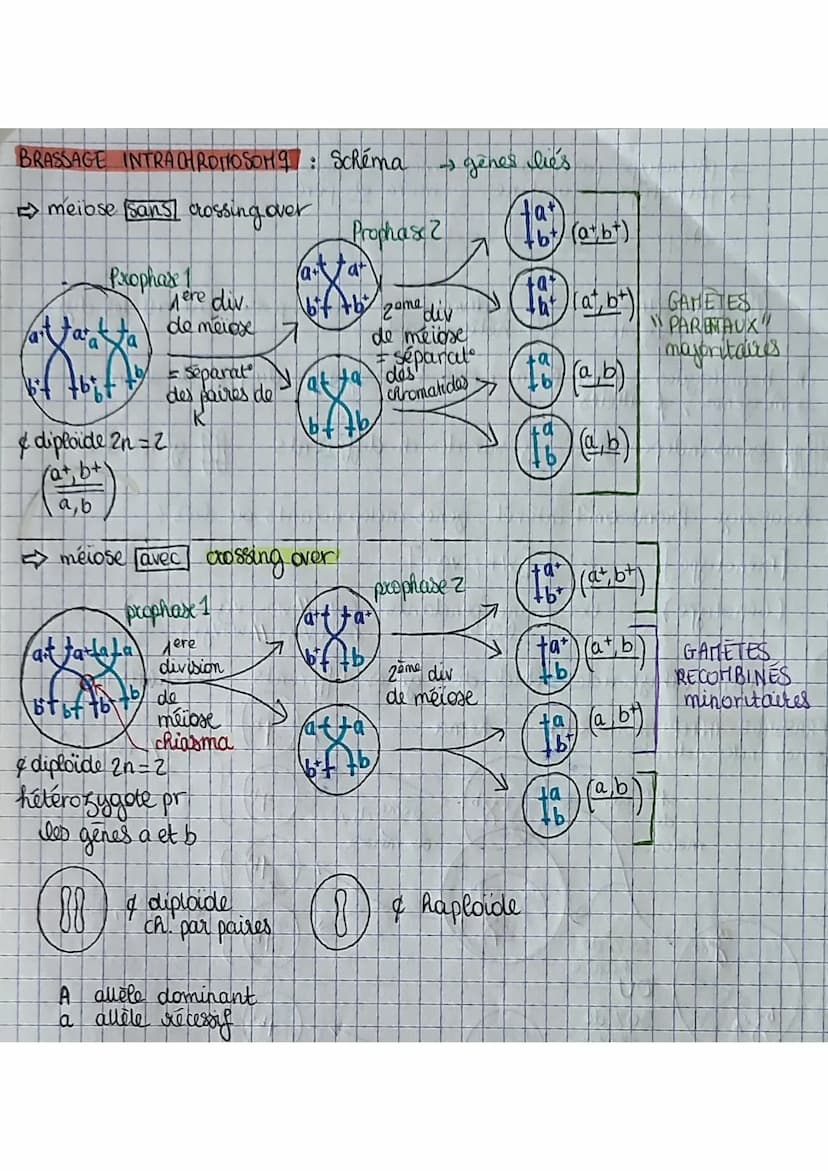 BRASSAGE INTRACHROMOSOMQ : Schéma → gènes liés
⇒ méiose sans crossing over
Prophase 1
a+ a+ a a
b+ b+ b b
¢ diploïde 2n = 2
(a+, b+)
a, b
1ère div.
de méiose
= séparat°
des paires de
K
Prophase 2
a+ a+
b+ b+
a a
b b
2ème div
de méiose
= séparat°
des
chromatides
a+
b+
(a+, b+)
a+
b+
(a+, b+)
a
b
(a, b)
a
b
(a, b)
GAMÈTES
"PARENTAUX"
majoritaires
⇒ méiose avec crossing over
prophase 1
a+ a+ a a
b+ b+ b b
1ere
division
de
méiose
chiasma
¢ diploïde 2n = 2
hétérozygote pr
les gènes a et b
prophase 2
a+ a+
b+ b
a a
b+ b
2ème div
de méiose
a+
b+
(a+, b+)
a+
b
(a+, b)
a
b+
(a, b+)
a
b
(a, b)
GAMÈTES
RECOMBINÉS
minoritaires
¢ diploïde
ch. par paires
¢ haploïde
A allèle dominant
a allèle récessif